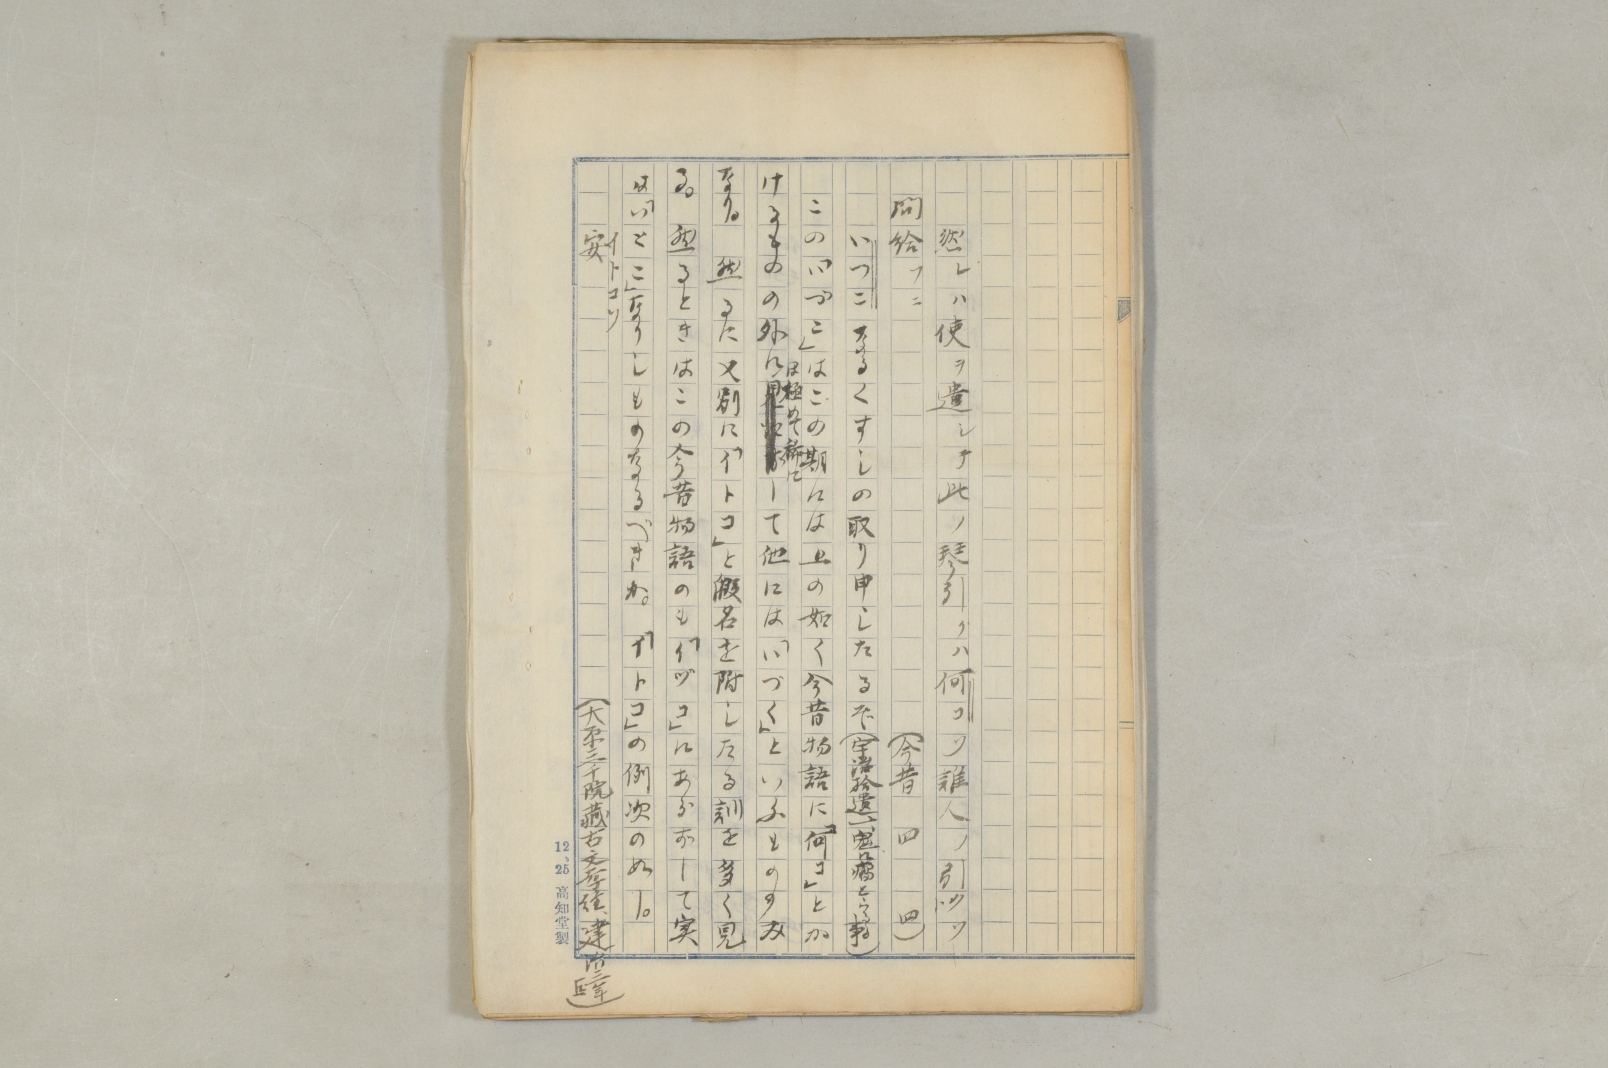 然レハ使ヲ遣シテ此ノ琴引クハ何コソ誰人ノ引ソ
問給フニ (今昔 四 四)
いつこなるくすしの取り申したるぞ(宇治拾遺、
この「いづこ」はこの期には上の如く今昔物語に「何コ」とか
けるものの外には極めて稀にして他には「いづく」といふもののみ
なり。然るに又別に「イトコ」と假名を附したる訓を多く見
る。然るときはこの今昔物語のも「イヅコ」にあらずして実
は「いとこ」なりしものなるべきか。「イトコ」の例次の如し。
安 イトコソ (大原三千院藏古文孝経、建治三年
12、25 高知堂製